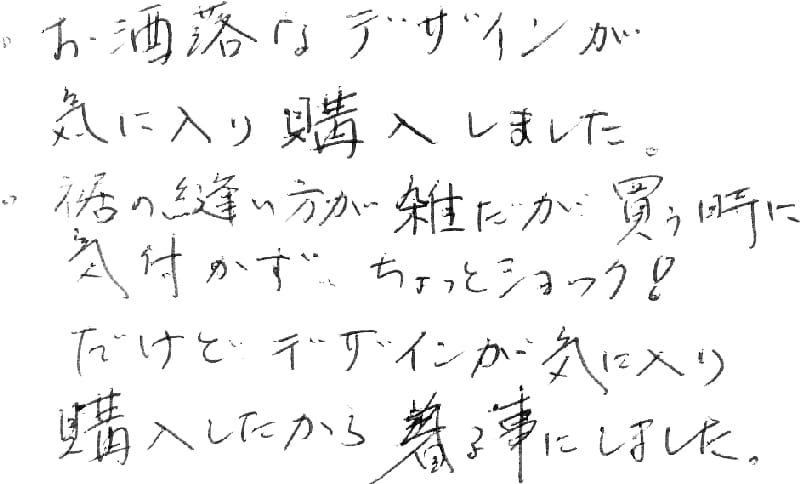 。お洒落なデザインが
気に入り購入しました。
。裾の縫い方が雑だが買う時に
気付かず、ちょっとショック!
だけどデザインが気に入り
購入したから着る事にしました。